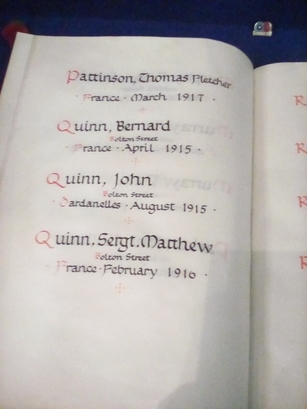 Pattinson, Thomas Fletcher
· France · March 1917 ·
Quinn, Bernard
Bolton Street
· France · April 1915 ·
Quinn, John
Bolton Street
· Dardanelles · August 1915 ·
Quinn, Sergt. Matthew
Bolton Street
France · February 1916 ·
R
R
R
R